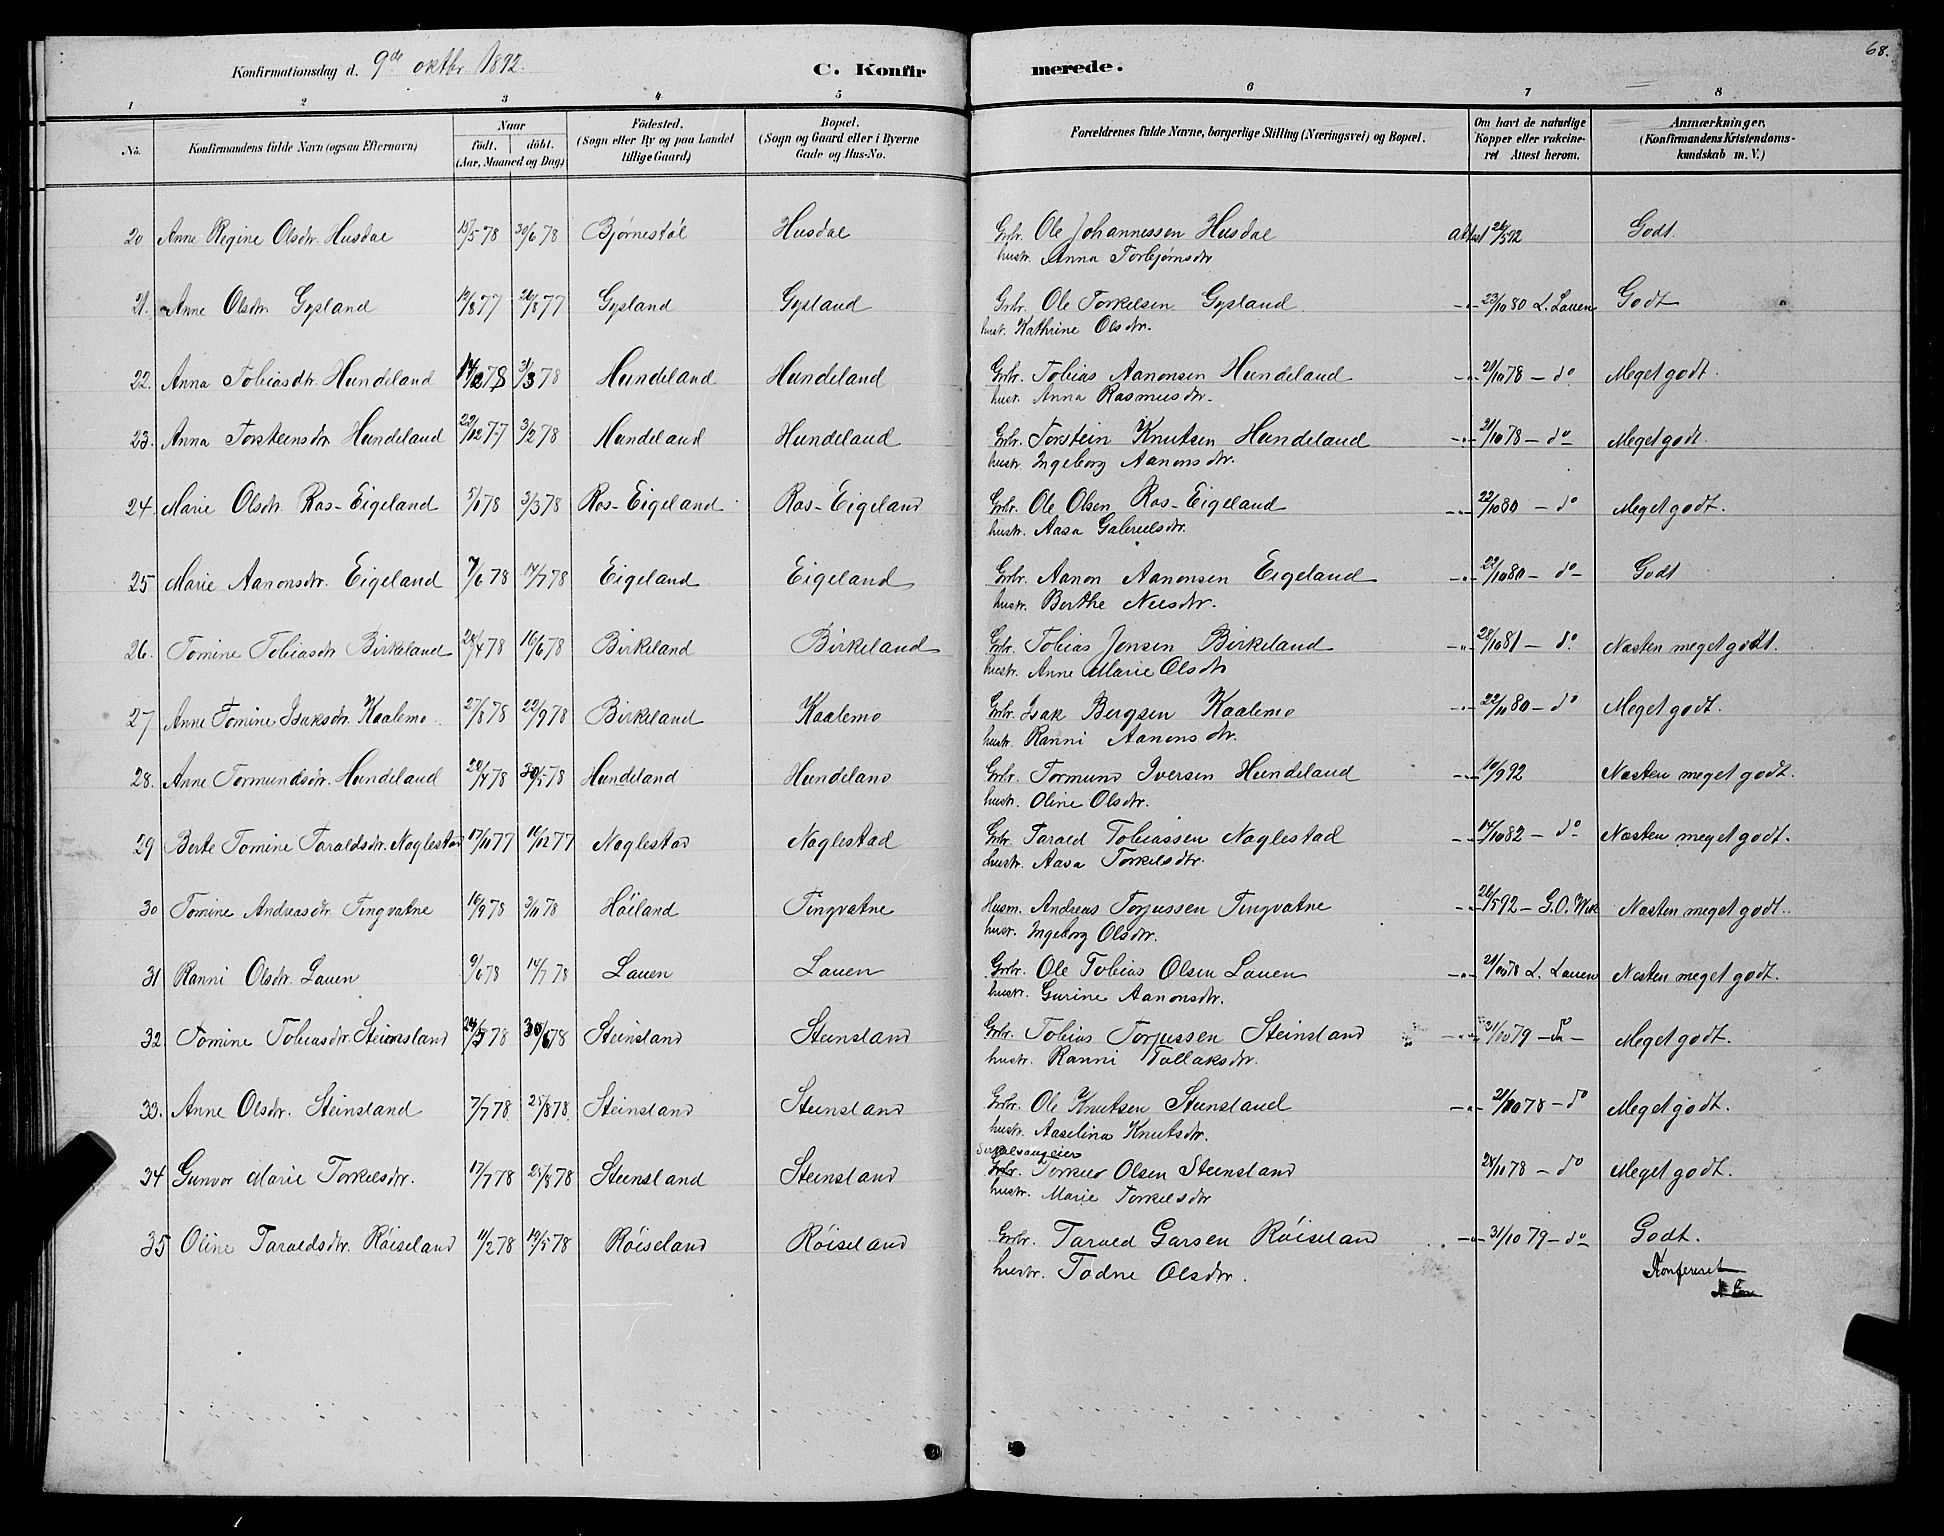 68.
Konfirmationsdag d. 9de oktbr. 1892.
C. Konfirmerede.
1 2 3 4 5 6 7 8
No.
Konfirmandens fulde Navn (ogsaa Efternavn)
Naar
født. döbt.
(Aar, Maaned og Dag)
Födested.
(Sogn eller By og paa Landet
tillige Gaard)
Bopæl.
(Sogn og Gaard eller i Byerne
Gade og Hus-No.
Forældrenes fulde Navne, borgerlige Stilling (Næringsvei) og Bopæl.
Om havt de naturlige
Kopper eller vakcine-
ret Attest herom.
Anmærkninger.
(Konfirmandens Kristendoms-
kundskab m. V.)
20 Anne Regine Olsdtr. Husdal 15/5 78 30/6 78 Bjørnestøl Husdal Grbr. Ole Johannessen Husdal Attest 24/5 92 Godt.
hustr. Anna Torbjørnsdtr
21. Anne Olsdtr Gysland 19/8 77 26/8 77 Gysland Gysland Grbr. Ole Torkelsen Gysland -"- 23/10 80 L. Lauen Godt
hustr. Kathrine Olsdtr.
22. Anna Tobiasdtr. Hundeland 14/2 78 31/3 78 Hundeland Hundeland Grbr. Tobias Aanonsen Hundeland -"- 21/10 78 - do Meget godt.
hustr. Anna Rasmusdtr.
23. Anna Torsteinsdtr Hundeland 22/12 77 3/2 78 Hundeland Hundeland Grbr. Torstein Knutsen Hundeland -"- 21/10 78 - do Meget godt.
hustr. Ingeborg Aanonsdtr.
24. Marie Olsdtr. Ros-Eigeland 5/1 78 3/3 78 Ros-Eigeland Ros-Eigeland Grbr. Ole Olsen Ros-Eigeland -"- 22/10 80 - do Meget godt.
hustr. Aasa Gabrielsdtr.
25 Marie Aanonsdtr. Eigeland 7/6 78 14/7 78 Eigeland Eigeland Grbr. Aanon Aanonsen Eigeland -"- 22/10 80 - do - Godt
hustr. Berthe Nilsdtr.
26. Tomine Tobiasdtr Birkeland 28/4 78 16/6 78 Birkeland Birkeland Grbr. Tobias Jensen Birkeland -"- 28/10 81 - do. Næsten meget godt.
hustr. Anne Marie Olsdtr
27 Anne Tomine Isaksdtr. Kaalemo 27/8 78 22/9 78 Birkeland Kaalemo Grbr. Isak Bergsen Kaalemo -"- 22/10 80 - do Meget godt.
hustr. Ranni Aanonsdtr.
28. Anne Tormundsdtr. Hundeland 20/4 78 30/5 78 Hundeland Hundeland Grbr. Tormund Iversen Hundeland -"- 10/9 92 Næsten meget godt.
hustr. Oline Olsdtr.
29 Berte Tomine Taraldsdtr. Naglestad 17/10 77 16/12 77 Naglestad Naglestad Grbr. Tarald Tobiassen Naglestad -"- 14/10 82 - do Næsten meget godt.
hustr. Aasa Torkelsdtr.
30 Tomine Andreasdtr Tingvatne 16/9 78 3/11 78 Höiland Tingvatne Husm. Andreas Torjussen Tingvatne -"- 26/5 92 - G.O. Næsten meget godt.
hustr. Ingeborg Olsdtr.
31 Ranni Olsdtr. Lauen 9/6 78 14/7 78 Lauen Lauen Grbr. Ole Tobias Olsen Lauen -"- 21/10 78 L. Lauen Næsten meget godt.
hustr. Gurine Aanonsdtr.
32 Tomine Tobiasdtr. Steinsland 24/5 78 30/6 78 Steinsland Steinsland Grbr. Tobias Torjussen Steinsland -"- 31/10 79 - do - Meget godt.
hustr. Ranni Tallaksdtr.
33. Anne Olsdtr. Steinsland 7/7 78 25/8 78 Steinsland Steinsland Grbr. Ole Knutsen Steinsland -"- 21/10 78 - do Meget godt.
hustr. Aaselina Knutsdtr.
34 Gunvor Marie Torkelsdtr. 17/7 78 25/8 78 Steinsland Steinsland Grbr. Torkild Olsen Steinsland 24/10 78 - do Meget godt.
hustr. Marie Torkelsdtr
35 Oline Taraldsdtr. Röiseland 11/2 78 19/5 78 Röiseland Röiseland Grbr. Tarald Garsen Röiseland -"- 31/10 79 - do Godt.
hustr. Todne Olsdtr.
Konfereret